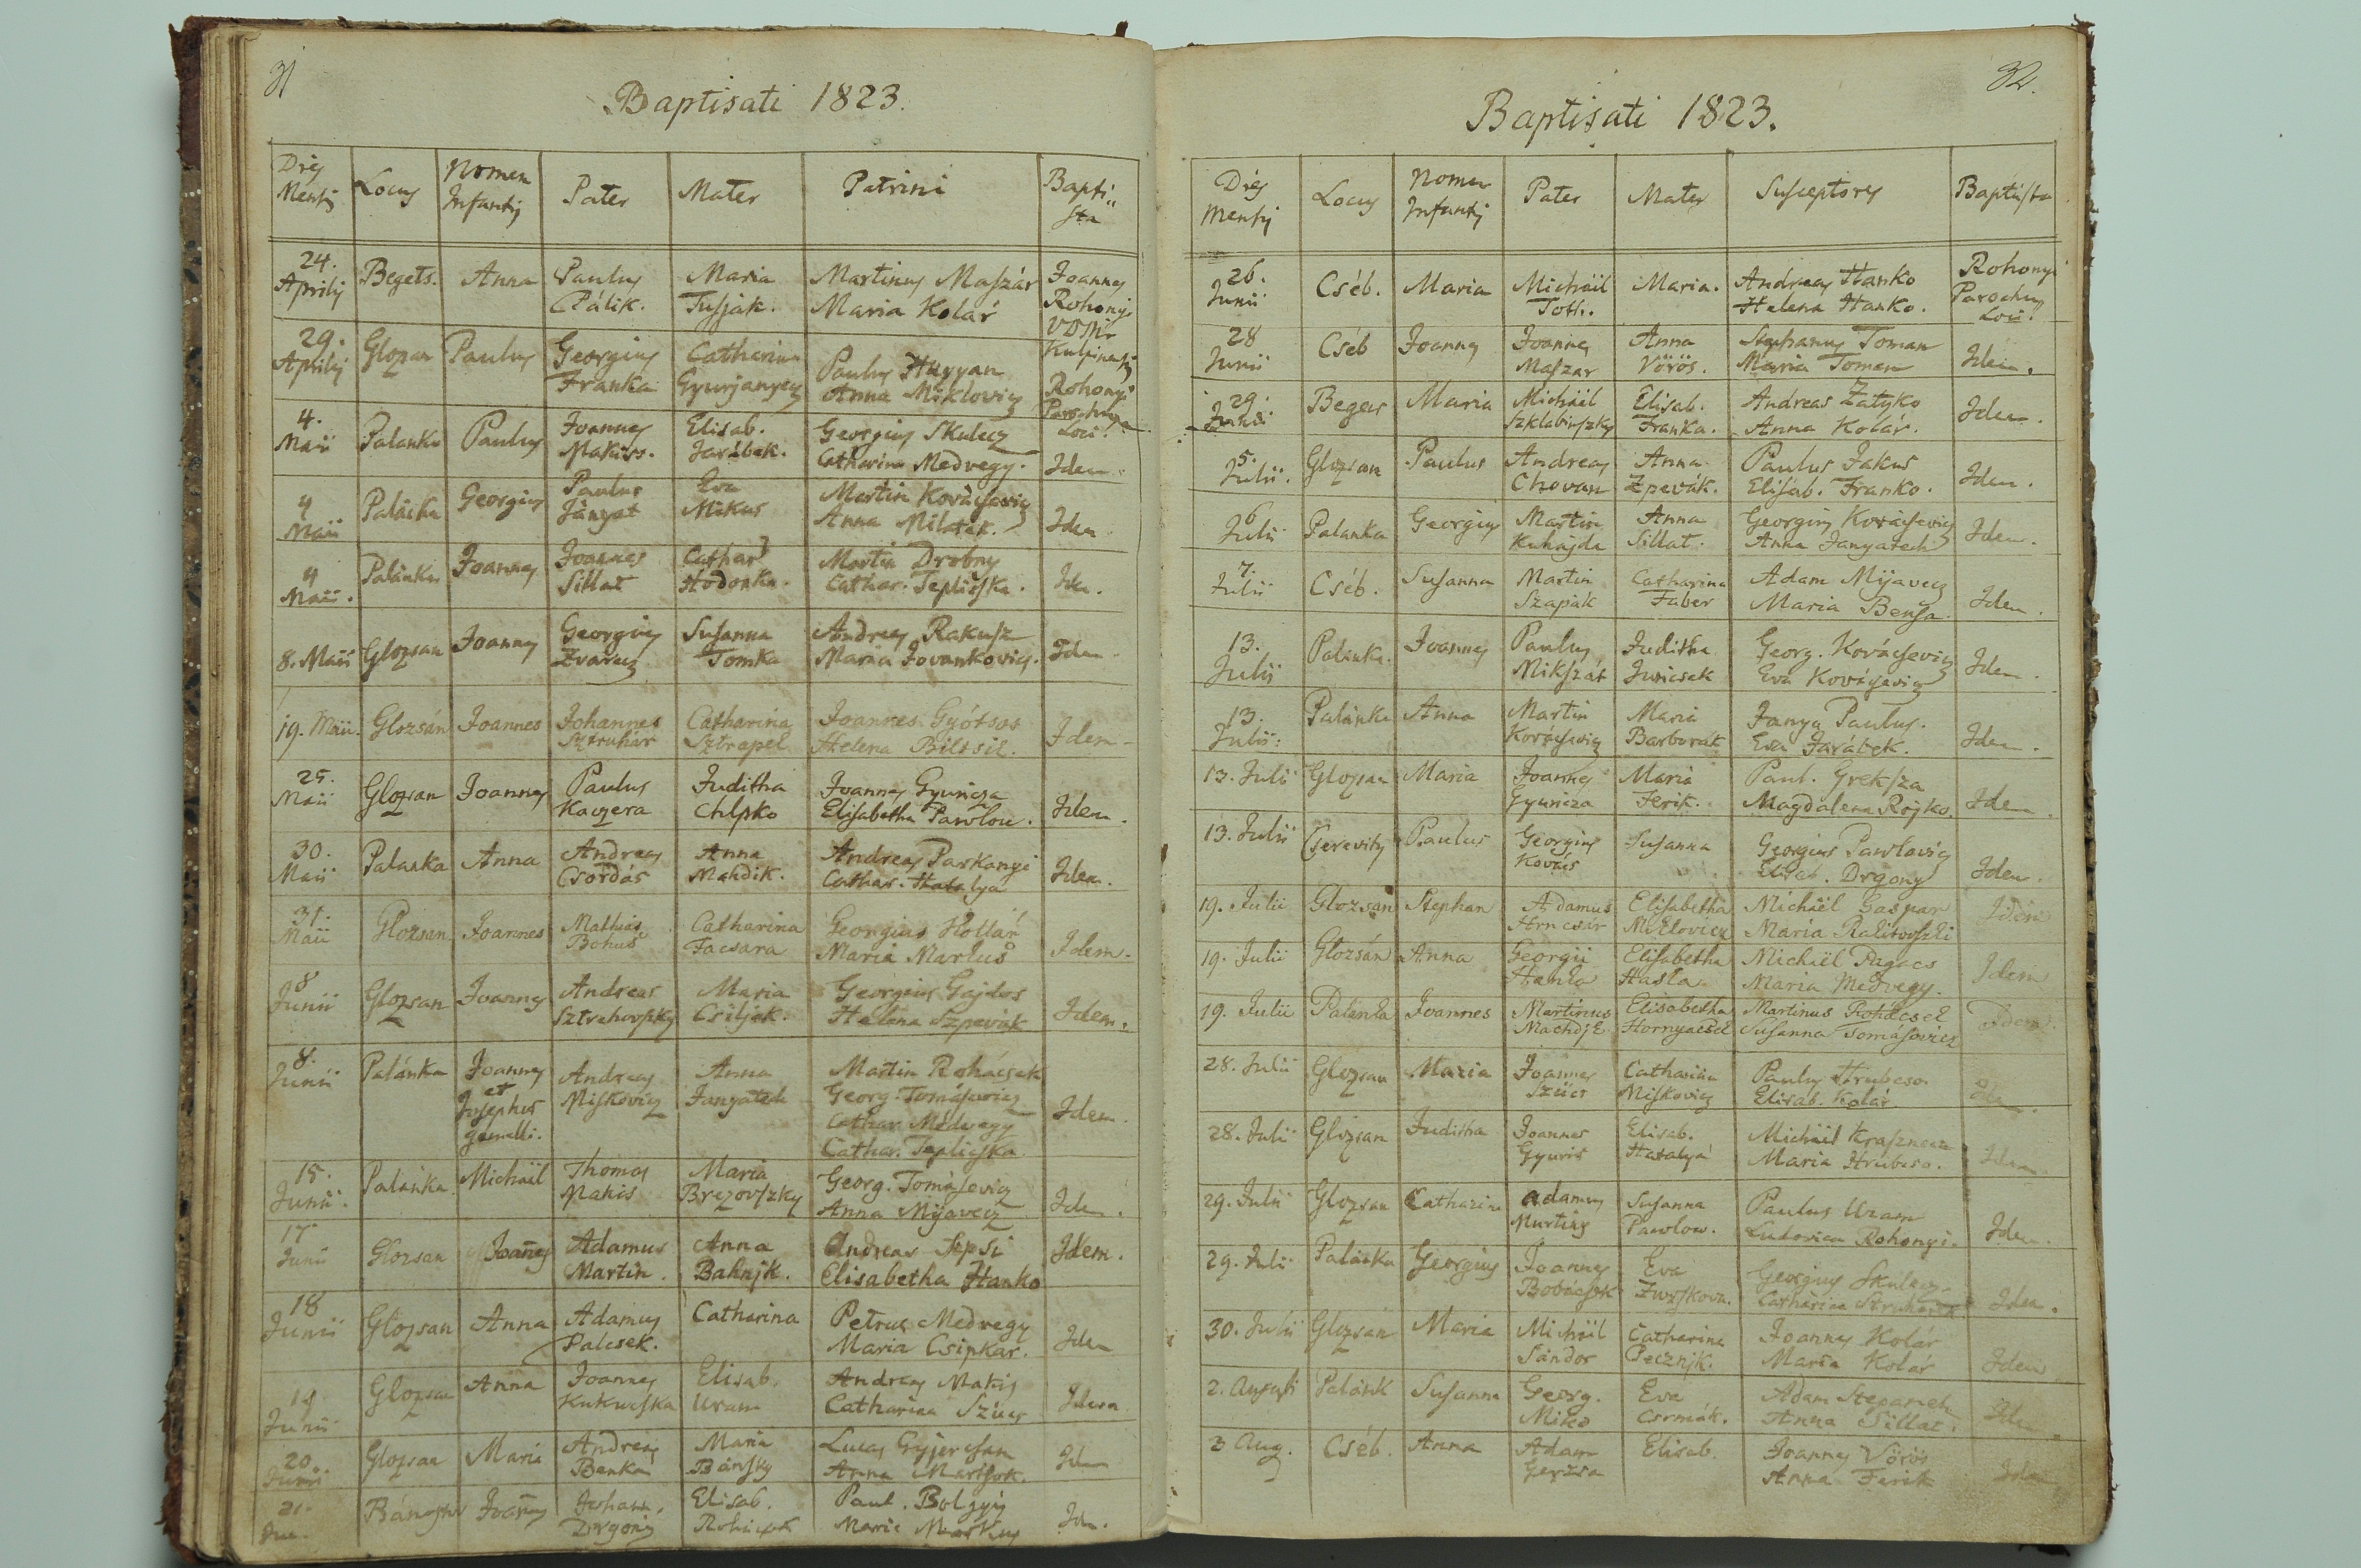 31
Baptisati 1823.
Dies Mensis Locus Nomen Infantis Pater Mater Patrini Baptista
24. Aprilis Begets. Anna Paulus Pálik. Maria Tusjak. Martinus Maszár Maria Kolár Joannes Rohonyi VDMr
29. Aprilis Glozan Paulus Georgius Franka Catharina Paulus Anna Miklovicz Rohonyi Parochus Loci.
4. Maii Palanka Paulus Joannes Makiss. Elisab. Jarábek. Georgius Skulecz Catharina Medvegy. Idem.
4 Maii Palánka Georgius Paulus Jányat Eva Mikus Martin Kovácsevicz Anna Idem
4 Maii. Palánka Joannes Joannes Sillat Cathar. Hodonka. Martin Drobny Cathar. Teplicska. Idem.
8. Maii Glozsan Joannes Georgius Zvarecz Susanna Tomka Andreas Rakusz Maria Jovankovics. Idem
19. Maii. Glozsán Joannes Johannes Sztruhár Catharina Sztrapel Joannes Gyótsos Helena Idem
25. Maii Glozsan Joannes Paulus Kaczera Juditha Chlpko Joannes Gyuricza Elisabetha Pawlow. Idem.
30. Maii Palanka Anna Andreas Csordás Anna Mahdik. Andreas Parkanyi Cathar. Hatalya Idem.
31. Maii Glozsan Joannes Mathias Bohuš Catharina Facsara Georgius Kollár Maria Markuš Idem.
8 Junii Glozsan Joannes Andreas Sztrehovszky Maria Csiljak. Georgius Gajdos Helena Szpevák Idem.
8. Junii Palánka Joannes et Josephus gemelli. Andreas Miskovicz Anna Janyatek Martin Rohácsek Georg. Tomásevicz Cathar. Medvegy Cathar. Teplicska Idem.
15. Junii. Palánka Michäil Thomas Makis Maria Brezovszky Georg. Tomásevicz Anna Mijavecz Idem.
17 Junii Glozsan Joañes Adamus Martin. Anna Bahnjk. Andreas Sepsi Elisabetha Hanko Idem.
18 Junii Glozsan Anna Adamus Palcsek. Catharina Petrus Medvegy Maria Csipkar. Idem
Junii Glozsan Anna Joannes Kukucska Elisab. Uram Andreas Makis Catharina Szücs Idem
20. Junii Glozsan Maria Andreas Benka Maria Bánsky Lucas Anna Idem
21. Jun. Joañes Johann. Elisab. Paul. Maria Markus Idem.
32.
Baptisati 1823.
Dies Mensis Locus Nomen Infantis Pater Mater Susceptores Baptista
26. Junii Cséb. Maria Michäil Toth. Maria. Andreas Hanko Helena Hanko. Rohonyi Parochus Loci.
28 Junii Cséb Joannes Joannes Maszar Anna Vörös. Stephanus Toman Maria Toman Idem.
29. Junii Begecs Maria Michäil Szklabinszky Elisab. Franka. Andreas Zatyko Anna Kolár. Idem.
5. Julii. Glozsan Paulus Andreas Chovan Anna Zpevák. Paulus Jakus Elisab. Franko. Idem.
6 Julii Palanka Georgius Martin Kuhajda Anna Sillat. Georgius Kovácsevicz Anna Janyatech Idem.
7. Julii Cséb. Susanna Martin Szapák Catharina Faber Adam Mijavecz Maria Bensa. Idem.
13. Julii Palánka. Joannes Paulus Mikszát Juditha Juricsek Georg. Kovácsevicz Eva Kovácsevicz Idem.
13. Julii. Palánka Anna Martin Kovácsevicz Maria Barborák Janya Paulus. Eva Jarábek. Idem.
13. Julii Glozsan Maria Joannes Gyuricza Maria Ferik. Paul. Greksza Magdalena Rojko. Idem.
13. Julii Cserevity Paulus Georgius Kovács Susanna Georgius Pawlovicz Elisab. Drgony Idem.
19. Julii Glozsan Stephan Adamus Hrncsár Elisabetha Miklovicz Michäel Gaspar Maria Rakitovszki Idem
19. Julii Glozsán Anna Georgii Hanka Elisabetha Haska Michäel Pagacs Maria Medvegy. Idem
19. Julii Palanka Joannes Martinus Machdjk Elisabetha Hornyacsek Martinus Rohácsek Susanna Tomásovicz Idem.
28. Julii Glozsan Maria Joannes Szücs Catharina Miskovicz Paulus Hrubcso. Elisab. Kolár Idem.
28. Julii Glozsan Juditha Joannes Gyuris Elisab. Hatalyá Michäil Krasznecz Maria Hrubcso. Idem.
29. Julii Glozsan Catharina Adamus Murtins Susanna Pawlow. Paulus Uram Ludovica Rohonyi. Idem.
29. Julii Palánka Georgius Joannes Bobácsek Eva Zurskova. Georgius Skulecz. Catharina Idem.
30. Julii Glozsan Maria Michäil Sándor Catharina Pecznjk. Joannes Kolár Maria Kolár Idem
2. Augusti Palánk Susanna Georg. Miko Eva Csrmák. Adam Stepanek Anna Sillat. Idem
3 Aug. Cséb. Anna Adam Gerzsa Elisab. Joannes Vörös Anna Ferik Idem